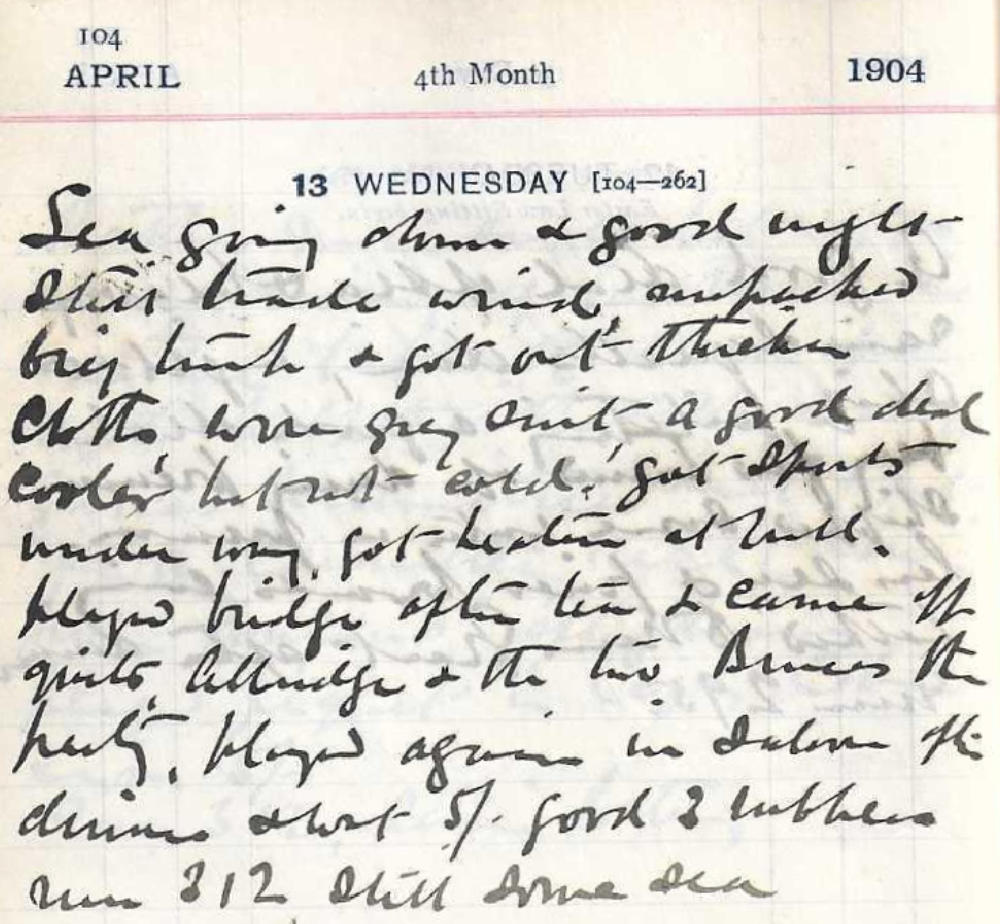 104
APRIL 4th Month 1904
13 WEDNESDAY [104—262]
Sea going down & good night
Still trade wind, unpacked
big trunk & got out thicker
Clothes, wore grey suit, a good deal
cooler but not cold, got sports
under way, got beaten at Bull.
played bridge after tea & came off
quits, & the two Bruces the
party, played again in Saloon after
dinner & lost 5/- good 3 rubbers
run 312 still some sea